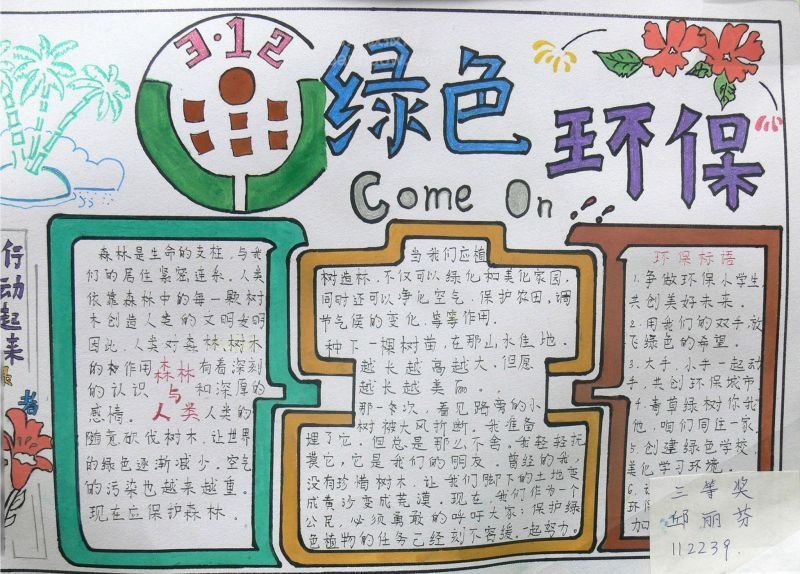 3·12
绿色
环保
Come On
行动起来
森林是生命的支柱,与我
们的居住紧密连系。人类
依靠森林中的每一颗树
木创造人类的文明发明
因此,人类对森林、树木
的作用
森林
与
人类
有着深刻
的认识
和深厚的
感情。
人类的
随意砍伐树木,让世界
的绿色逐渐减少。空气
的污染也越来越重。
现在应保护森林。
当我们应植
树造林,不仅可以绿化和美化家园,
同时还可以净化空气,保护农田,调
节气侯的变化,等等作用。
种下一棵树苗,在那山水佳地。
越长越高越大,但愿
越长越美丽。
那一次,看见路旁的小
树被大风折断。我准备
埋了它。但总是那么不舍。我轻轻扶
装它,它是我们的朋友。曾经的我,
没有珍惜树木,让我们脚下的土地变
成黄沙变成荒漠。现在,我们作为一个
公民,必须勇敢的呼吁大家:保护绿
色植物的任务已经刻不容缓,一起努力。
环保标语
1.争做环保小学生,
共创美好未来。
2.用我们的双手,放
飞绿色的希望。
3.大手,小手,一起动
手,共创环保城市
4.青草绿树你我
他,咱们同住一家
5.创建绿色学校,
美化学习环境。
6.
环保
加
三等奖
邱丽芬
112239.